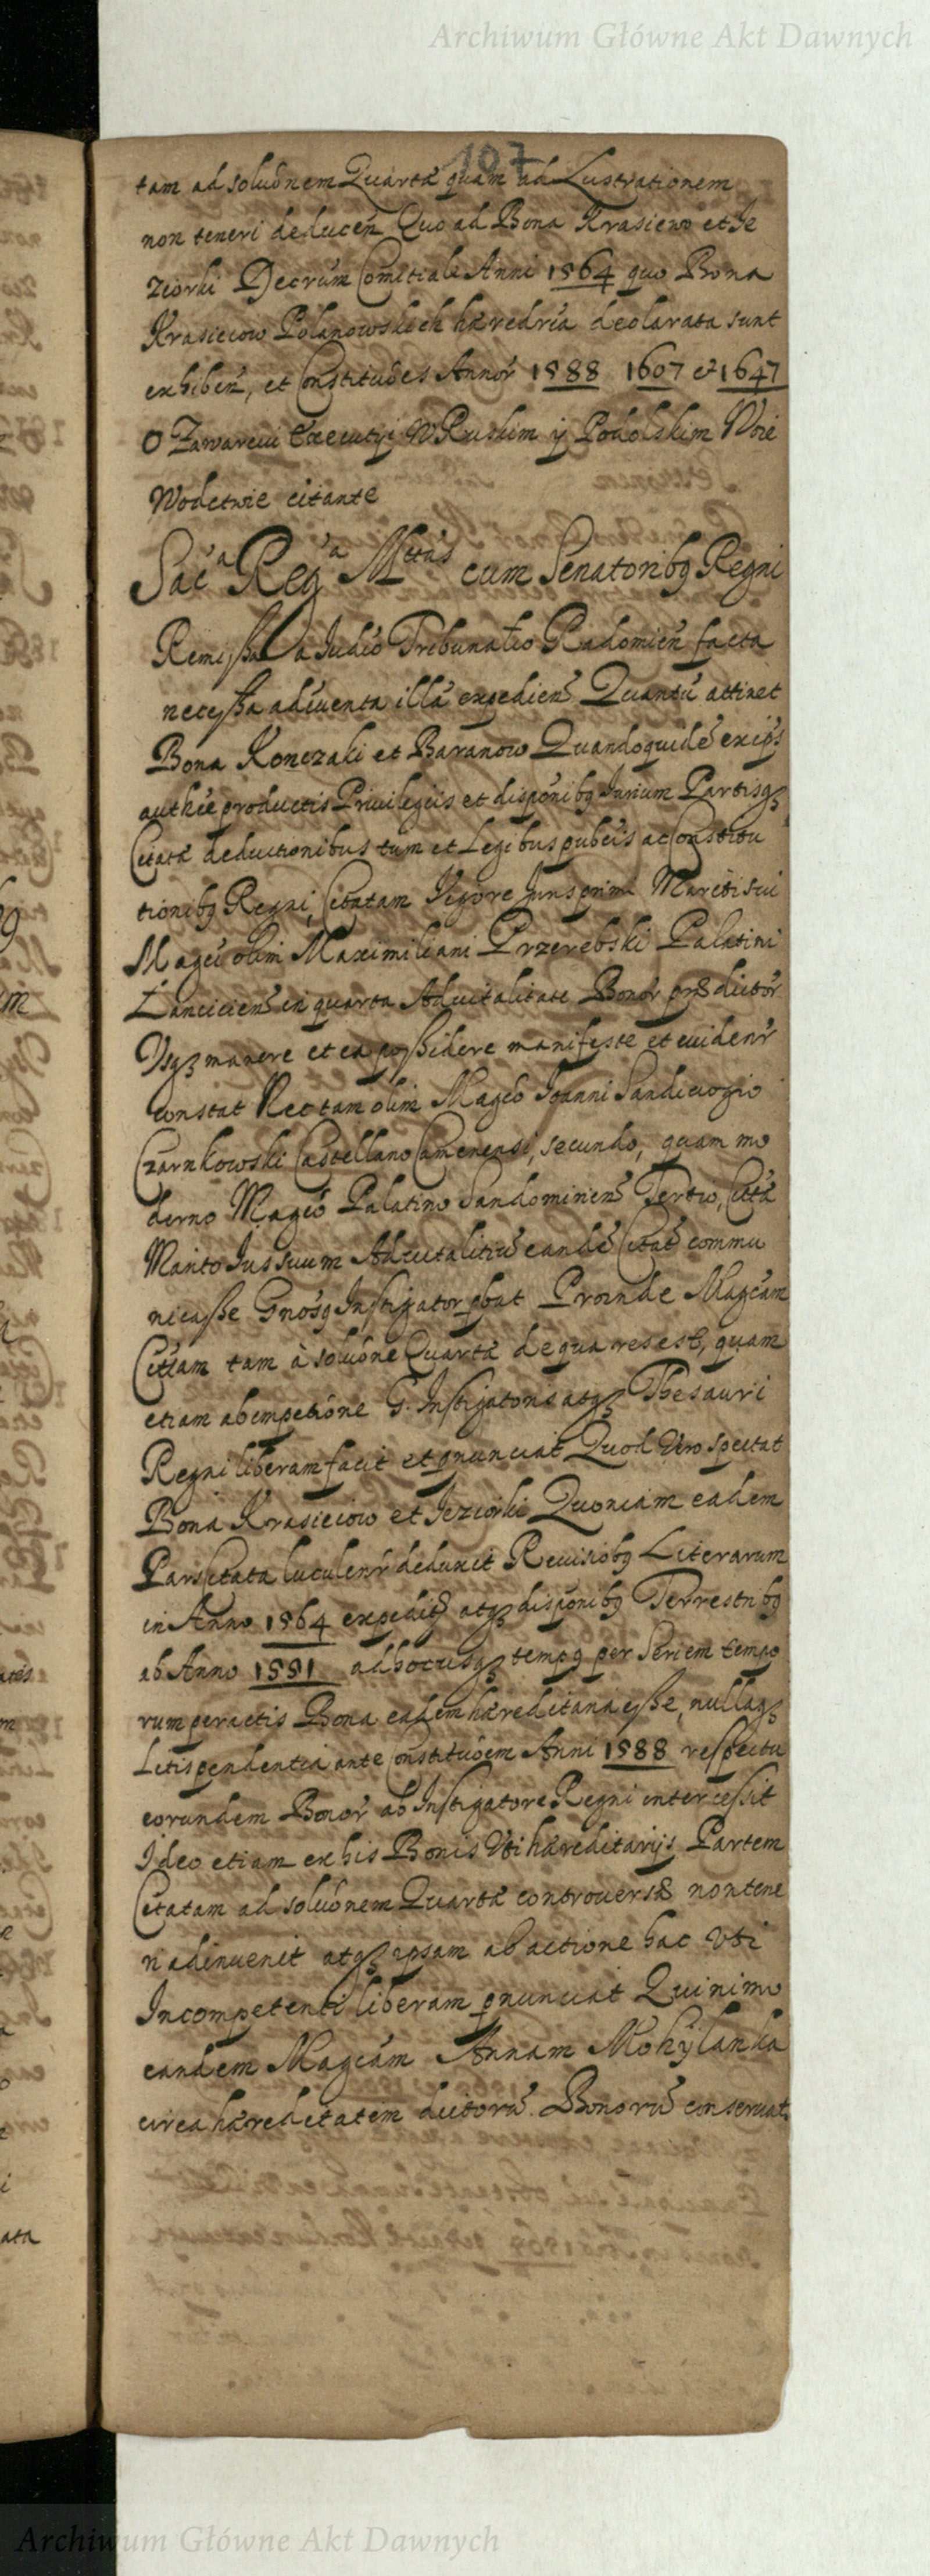 Archiwum Główne Akt Dawnych
107
tam ad solūōnem Quartæ quam ad Lustrationem
non teneri deducen̄ Quo ad Bona Krasieno et Je
ziorki Decrūm Comitiale Anni 1564 quo Bona
Krasieiow Polanowskich hæredria declarata sunt
exhiben̄, et Constitūōes Annor̄ 1588 1607 et 1647
O Zawarciu Executyi W Ruskim ÿ Podolskim Woie
Wodctwie citante
Sac̄a Reg̃a Mttās cum Senatoribq Regni
Remissa a Judīō Tribunatīo Radomien̄ facta
necessa adiuenta illā expedien̄ Quantū attinet
Bona Konczaki et Baranow Quandoquidē exips̄
authēe productis Priuilegiis et dispōnibq Jurium Partisq3
Citatæ deductionibus tum et Legibus pubcīs ac Constitu
tionibq Regni, Citatam Vigore Juris primi Mariti sui
Magcī olim Maximiliani Przerebski Palatini
Lancicien̄ in quarta Aduitalitate Bonor̄ præ dictor̄
Usq3 manere et ea possidere manifeste et euidenr̄
constat Nec tam olim Magcō Joanni Sandiuogio
Czarnkowski Castellano Camenensi, secundo, quam mo
derno Magcō Palatino Sandomirien̄ Tertio, Cittæ
Marito Jus suum Aduitalitiū eandē Citat̄ commu
nicasse Gnosq Instigator pbat Proinde Magcām
Cittam tam à solūōne Quartæ de qua res est, quam
etiam ab impetiōne G. Instigatoris atq3 Thesauri
Regni liberam facit et pnunciat Quod Vero spectat
Bona Krasieiow et Jeziorki Quoniam eadem
Pars Citata luculenr̄ deduxit Reuisiōbq Literarum
in Anno 1564 expeditis atq3 dispōnibq Terrestribq
ab Anno 1551 ad hocusq3 tempq per Seriem tempo
rum peractis Bona eadem hæreditaria esse, nullaq3
Litispendentia ante Constitūōem Anni 1588 respectu
eorundem Bonor̄ ab Instigatore Regni intercessit
Ideo etiam ex his Bonis Vti hæreditarijs Partem
Citatam ad solūōnem Quartæ controuersæ non tene
ri adinuenit atq3 ipsam ab actione hac Vti
Incompetenti liberam pnunciat Quinimo
eandem Magcām Annam Mohÿlanka
circa hæreditatem dictorū Bonorū conseruat
Archiwum Główne Akt Dawnych